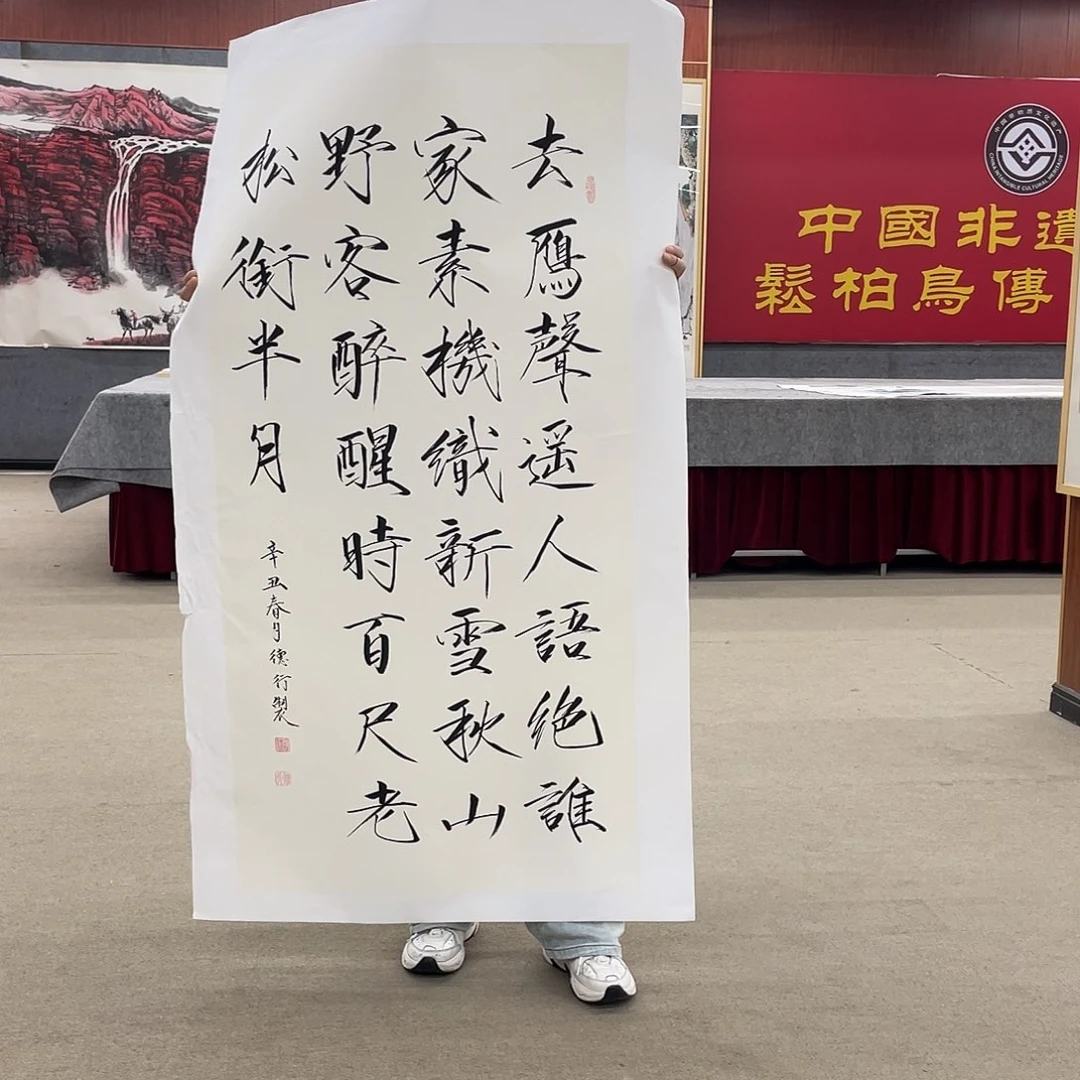 去鴈聲遥人語絶誰
家素機織新雪秋山
野客醉醒時百尺老
松銜半月
辛丑春月德行製
中國非遺
鬆柏鳥傳
中国非物质文化遗产
CHINA INTANGIBLE CULTURAL HERITAGE